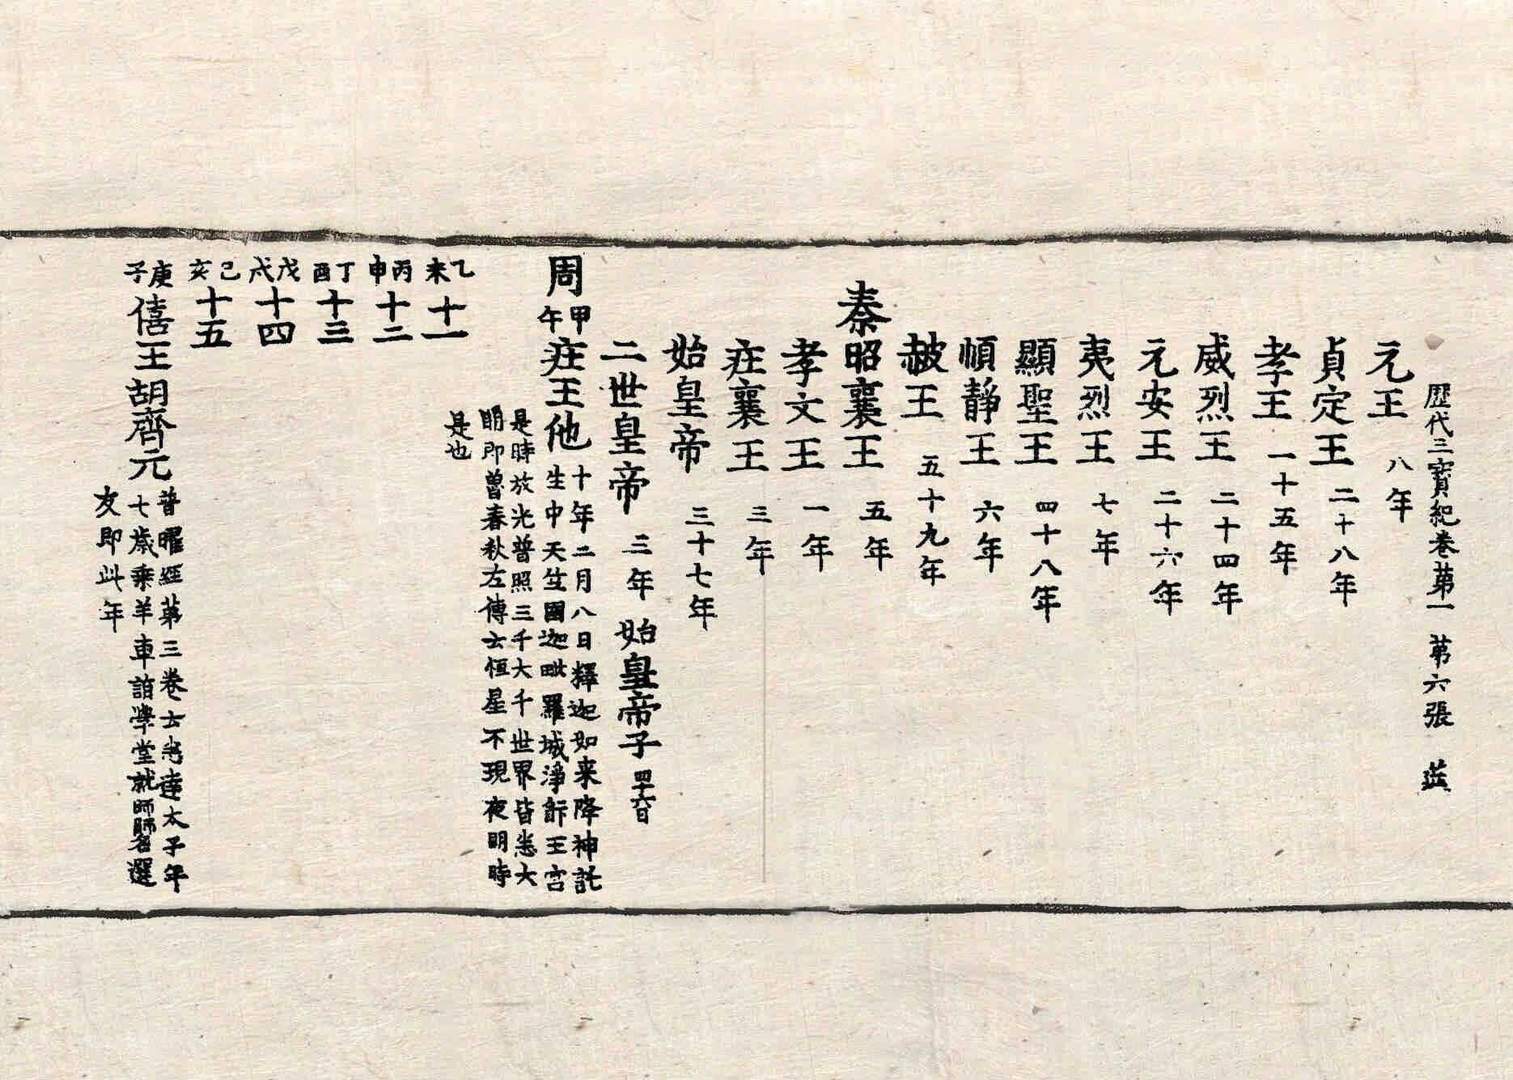 歷代三寶紀卷第一　第六張　並
元王　八年
貞定王　二十八年
孝王　一十五年
威烈王　二十四年
元安王　二十六年
夷烈王　七年
顯聖王　四十八年
順靜王　六年
赧王　五十九年
秦昭襄王　五年
孝文王　一年
庄襄王　三年
始皇帝　三十七年
二世皇帝　三年　始皇帝子　四十六日
周　甲午　庄王他　十年二月八日釋迦如来降神託
生中天竺國迦毗羅城淨飰王宫
是時放光普照三千大千世界皆悉大
明即魯春秋左傳云恒星不現夜明時
是也
乙未　十一
丙申　十二
丁酉　十三
戊戌　十四
己亥　十五
庚子　僖王胡齊元　普曜經第三卷云悉達太子年
七歲乘羊車詣學堂就師師名選
友即此年